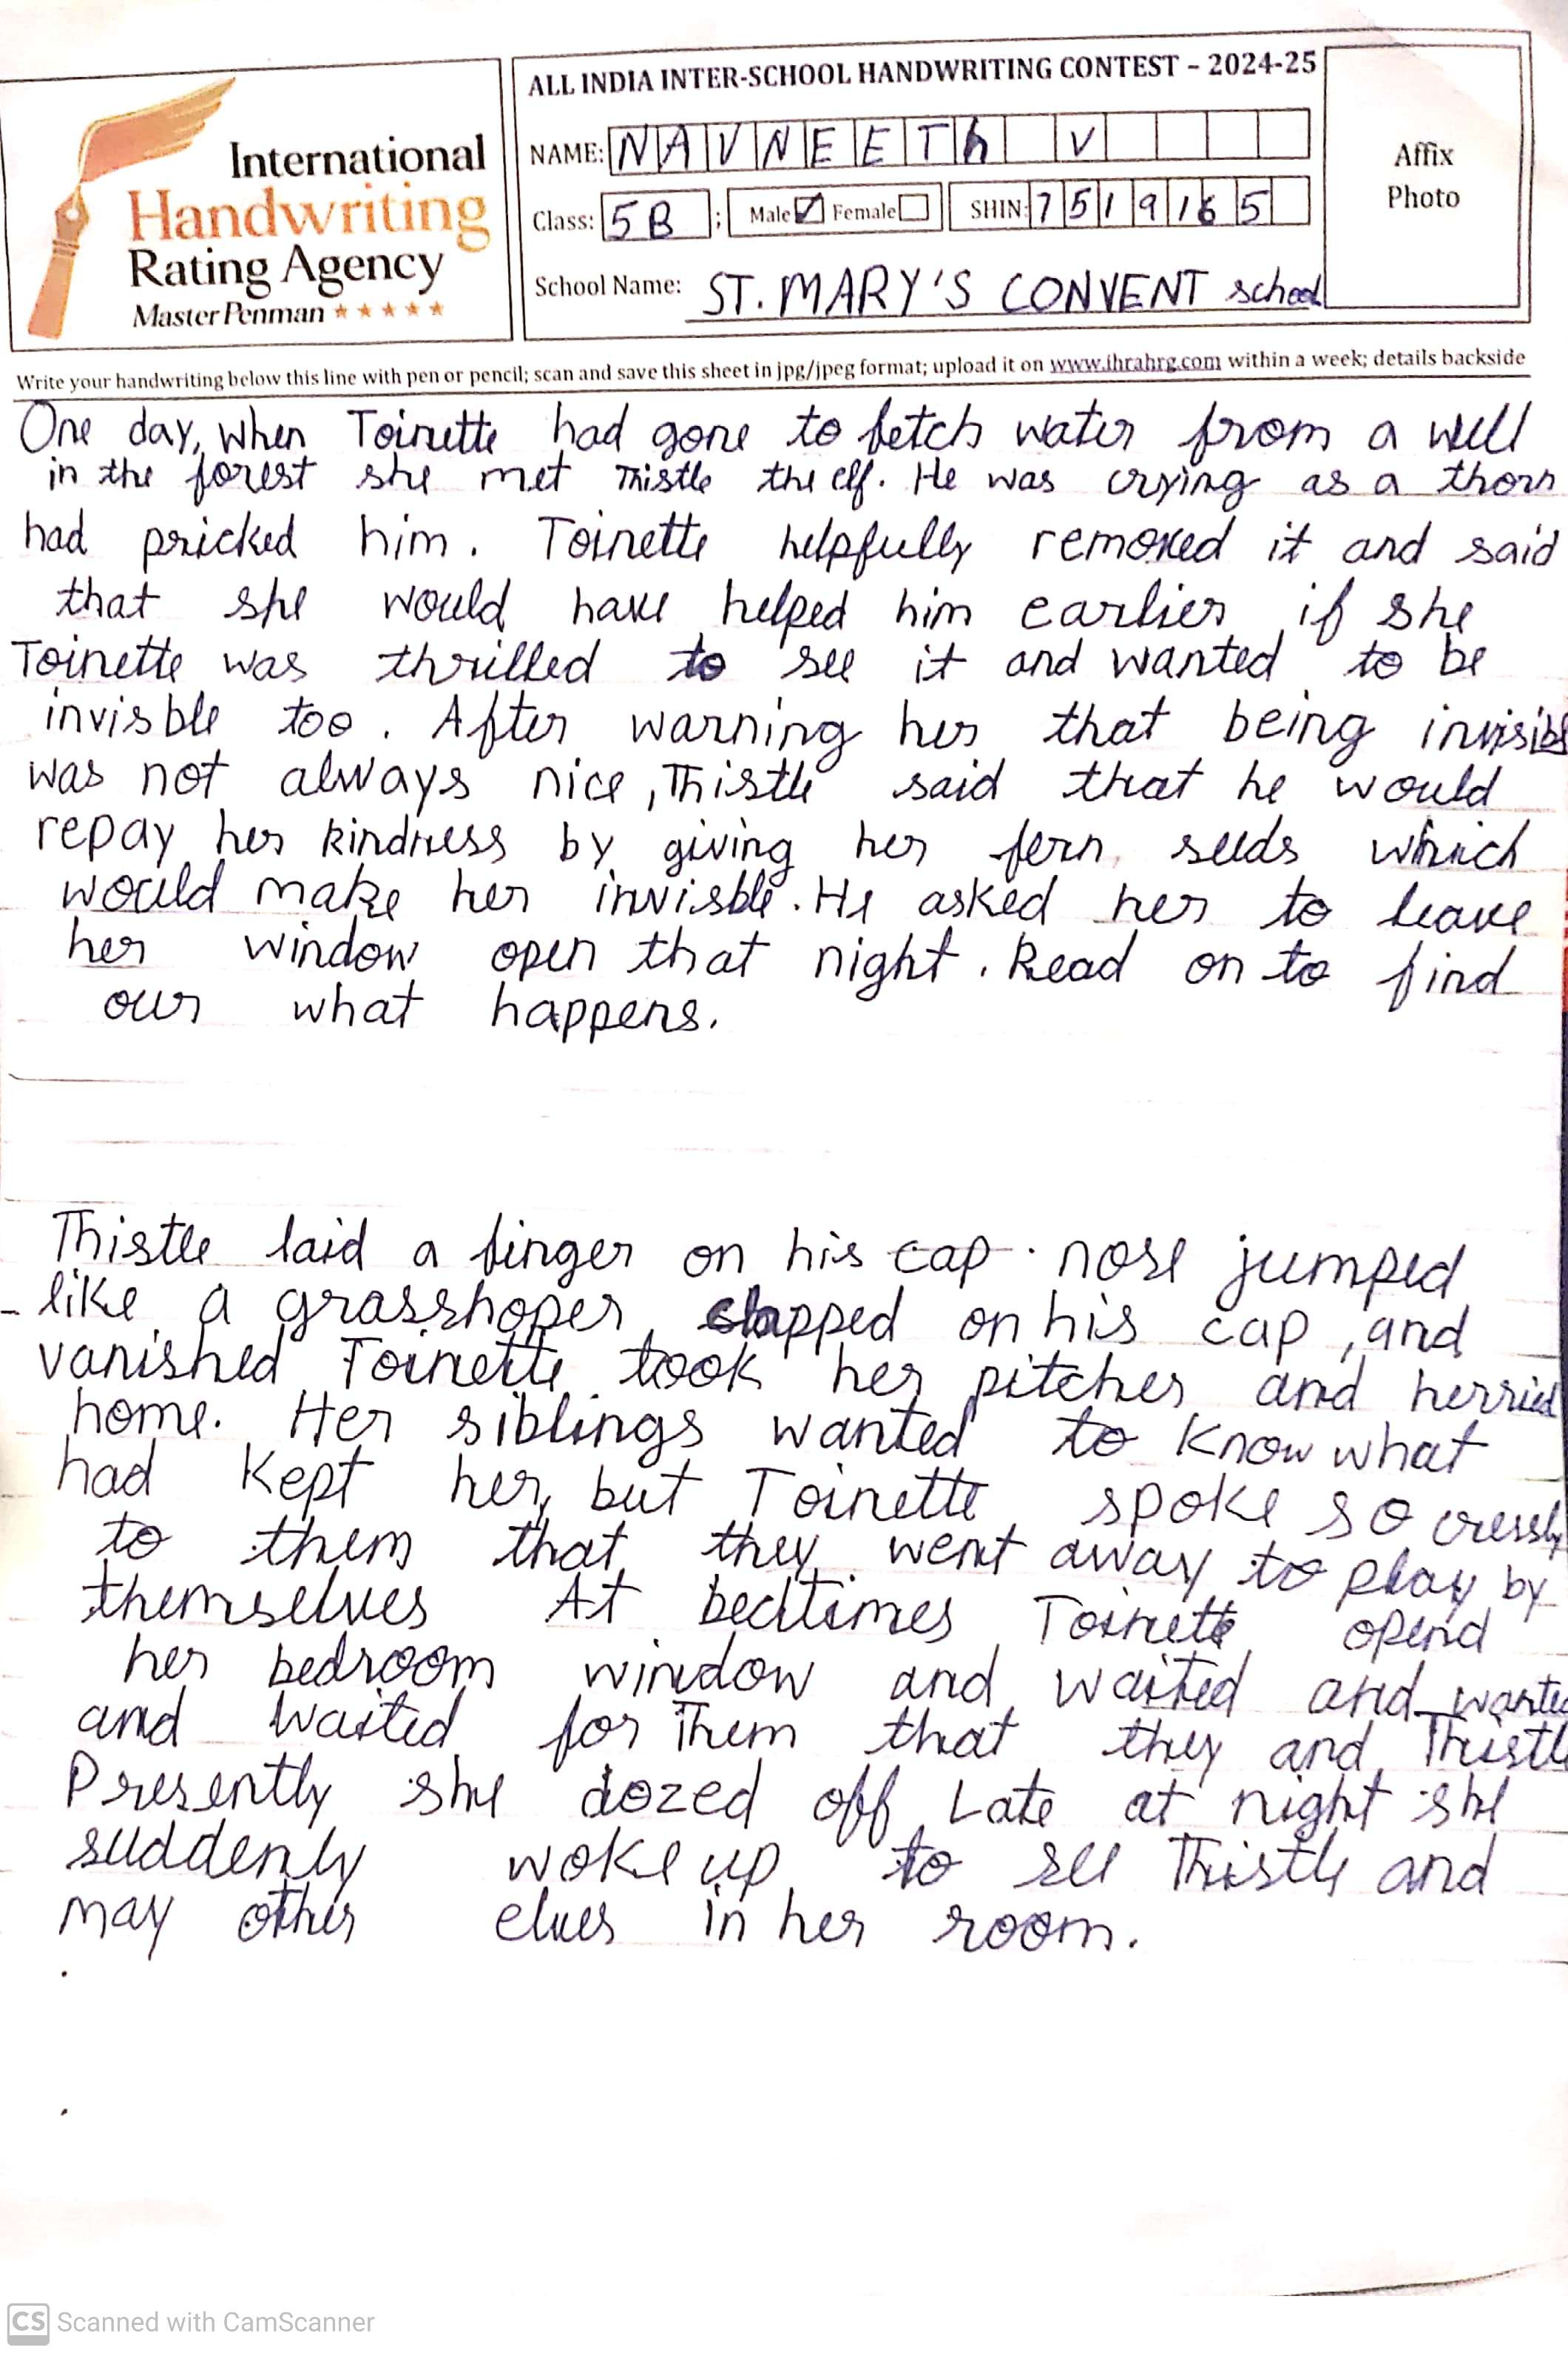 ALL INDIA INTER-SCHOOL HANDWRITING CONTEST – 2024-25
International
Handwriting
Rating Agency
Master Penman ★★★★★
NAME: NAVNEETh V
Class: 5B ; Male ☑ Female ☐ SHIN: 7519165
School Name: ST. MARY'S CONVENT school
Affix
Photo
Write your handwriting below this line with pen or pencil; scan and save this sheet in jpg/jpeg format; upload it on www.ihrahrg.com within a week; details backside
One day, when Toinette had gone to fetch water from a well
in the forest she met Thistle the elf. He was crying as a thorn
had pricked him. Toinette helpfully removed it and said
that she would have helped him earlier if she
Toinette was thrilled to see it and wanted to be
invisble too. After warning her that being invisibl
was not always nice, Thistle said that he would
repay her kindness by giving her fern seeds which
would make her invisble. He asked her to leave
her window open that night. Read on to find
our what happens.
Thistle laid a finger on his cap. nose jumped
like a grasshoper clapped on his cap, and
vanished Toinette took her pitcher and herried
home. Her siblings wanted to know what
had kept her, but Toinette spoke so cressly
to them that they went away to play by
themselves At bedtimes Toinette opend
her bedroom window and waited and wante
and waited for Them that they and Thistle
Presently she dozed off Late at night she
suddenly woke up to see Thistle and
may other elves in her room.
CS Scanned with CamScanner